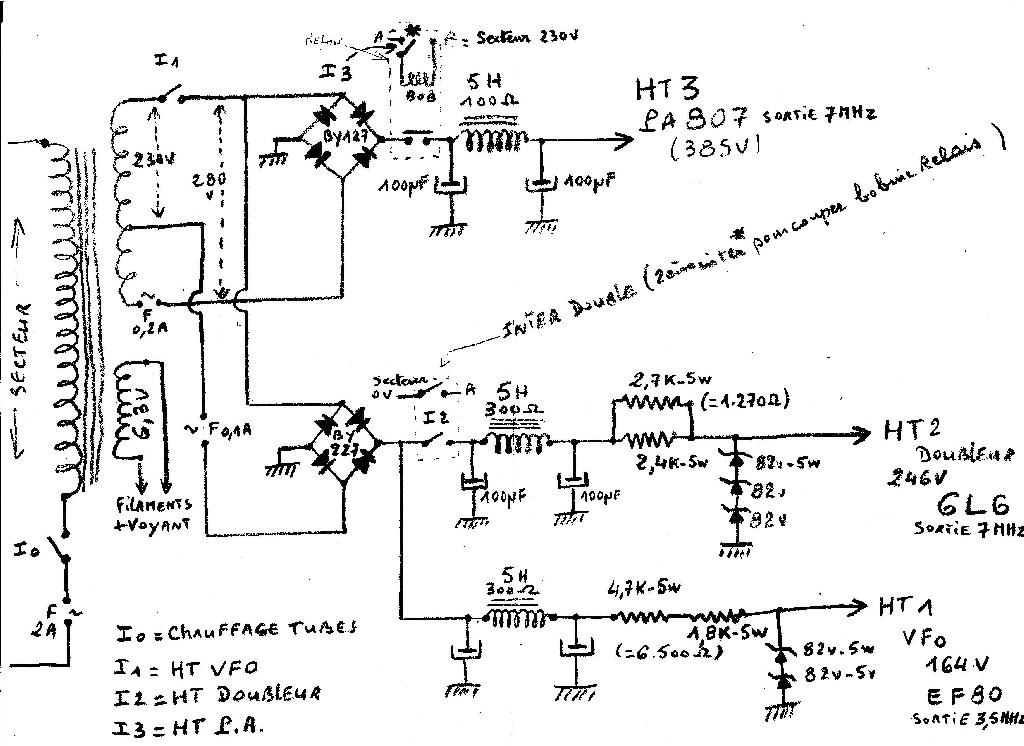 I1
I3
RELAIS
A
*
A = Secteur 230V
BOB
5H
100Ω
HT3
P.A 807 SORTIE 7MHz
(385V)
230V
280
V
BY127
100µF
100µF
SECTEUR
F
0,2A
~
INTER DOUBLE (2ème inter * pour couper bobine Relais)
6,3V
~ F0,1A
FILAMENTS
+VOYANT
BY
227
Secteur
0V
A
I2
5H
300Ω
100µF
100µF
2,7K-5w
(=1.270Ω)
2,4K-5w
82v-5w
82v
82v
HT2
DOUBLEUR
246V
6L6
SORTIE 7MHz
I0
F ~
2A
5H
300Ω
4,7K-5w
1,8K-5w
(=6.500Ω)
82v-5w
82v-5v
HT1
VFO
164V
EF80
SORTIE 3,5MHz
I0 = CHAUFFAGE TUBES
I1 = HT VFO
I2 = HT DOUBLEUR
I3 = HT P.A.